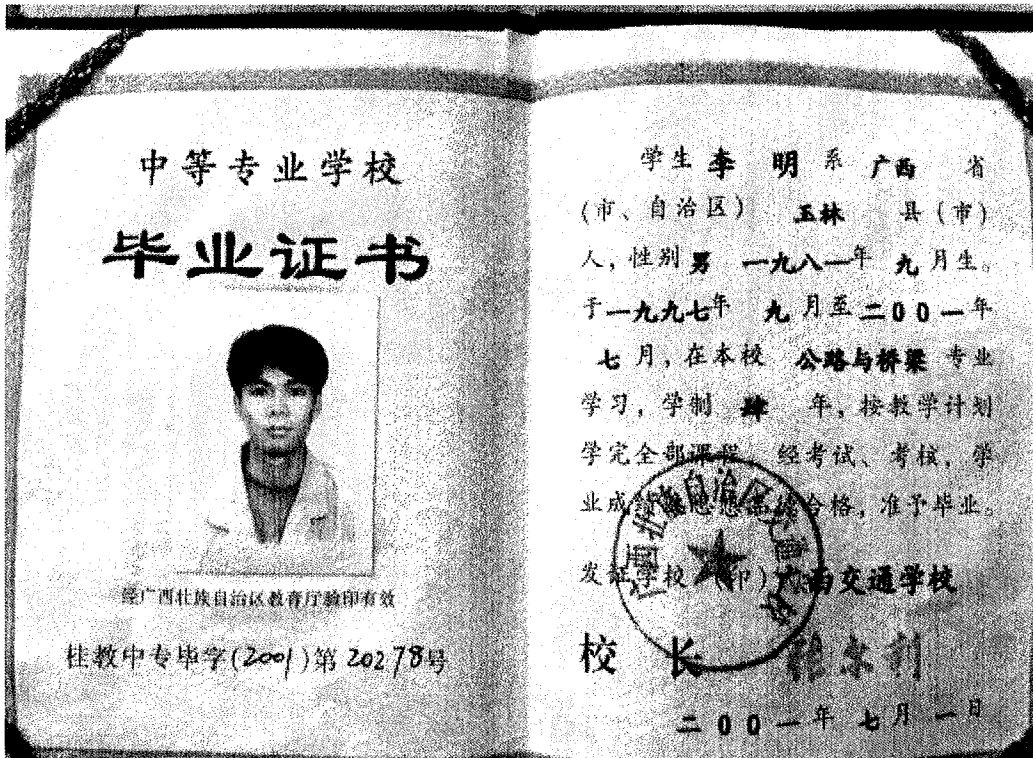 中等专业学校
毕业证书
经广西壮族自治区教育厅验印有效
桂教中专毕学(2001)第20278号
学生 李 明 系 广西 省
(市、自治区) 玉林 县(市)
人,性别 男 一九八一年 九月生。
于一九九七年 九月至二00一年
七月,在本校 公路与桥梁 专业
学习,学制 肆 年,按教学计划
学完全部课程,经考试、考核,学
业成绩及思想品德合格,准予毕业。
发证学校(印)广西交通学校
校 长
二00一年 七月 一日